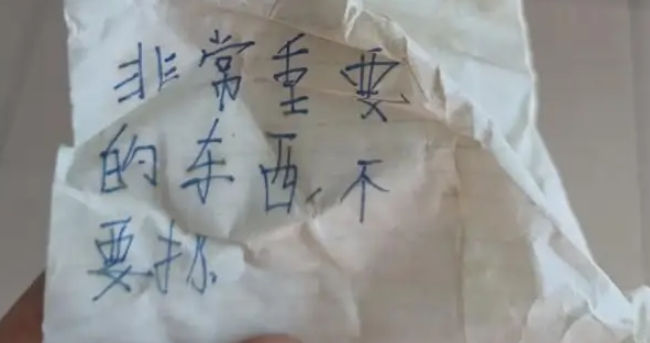 非常重要
的东西,不
要